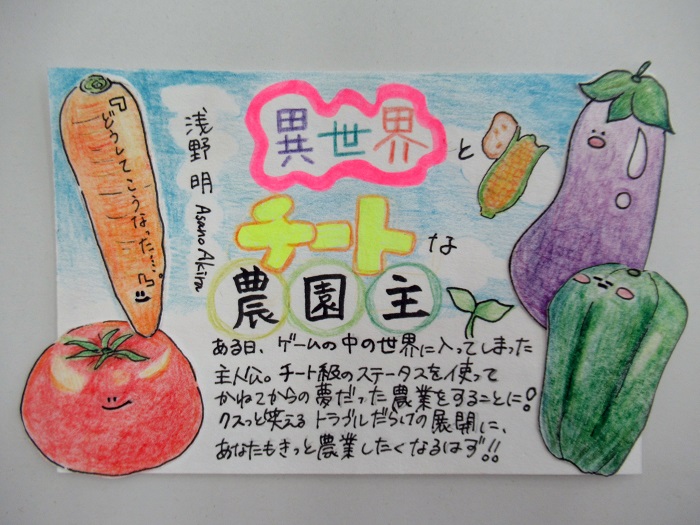 異世界と
チートな
農園主
浅野明 Asano Akira
『どうしてこうなった…。』
ある日、ゲームの中の世界に入ってしまった
主人公。チート級のステータスを使って
かねてからの夢だった農業をすることに!
クスっと笑えるトラブルだらけの展開に、
あなたもきっと農業したくなるはず!!